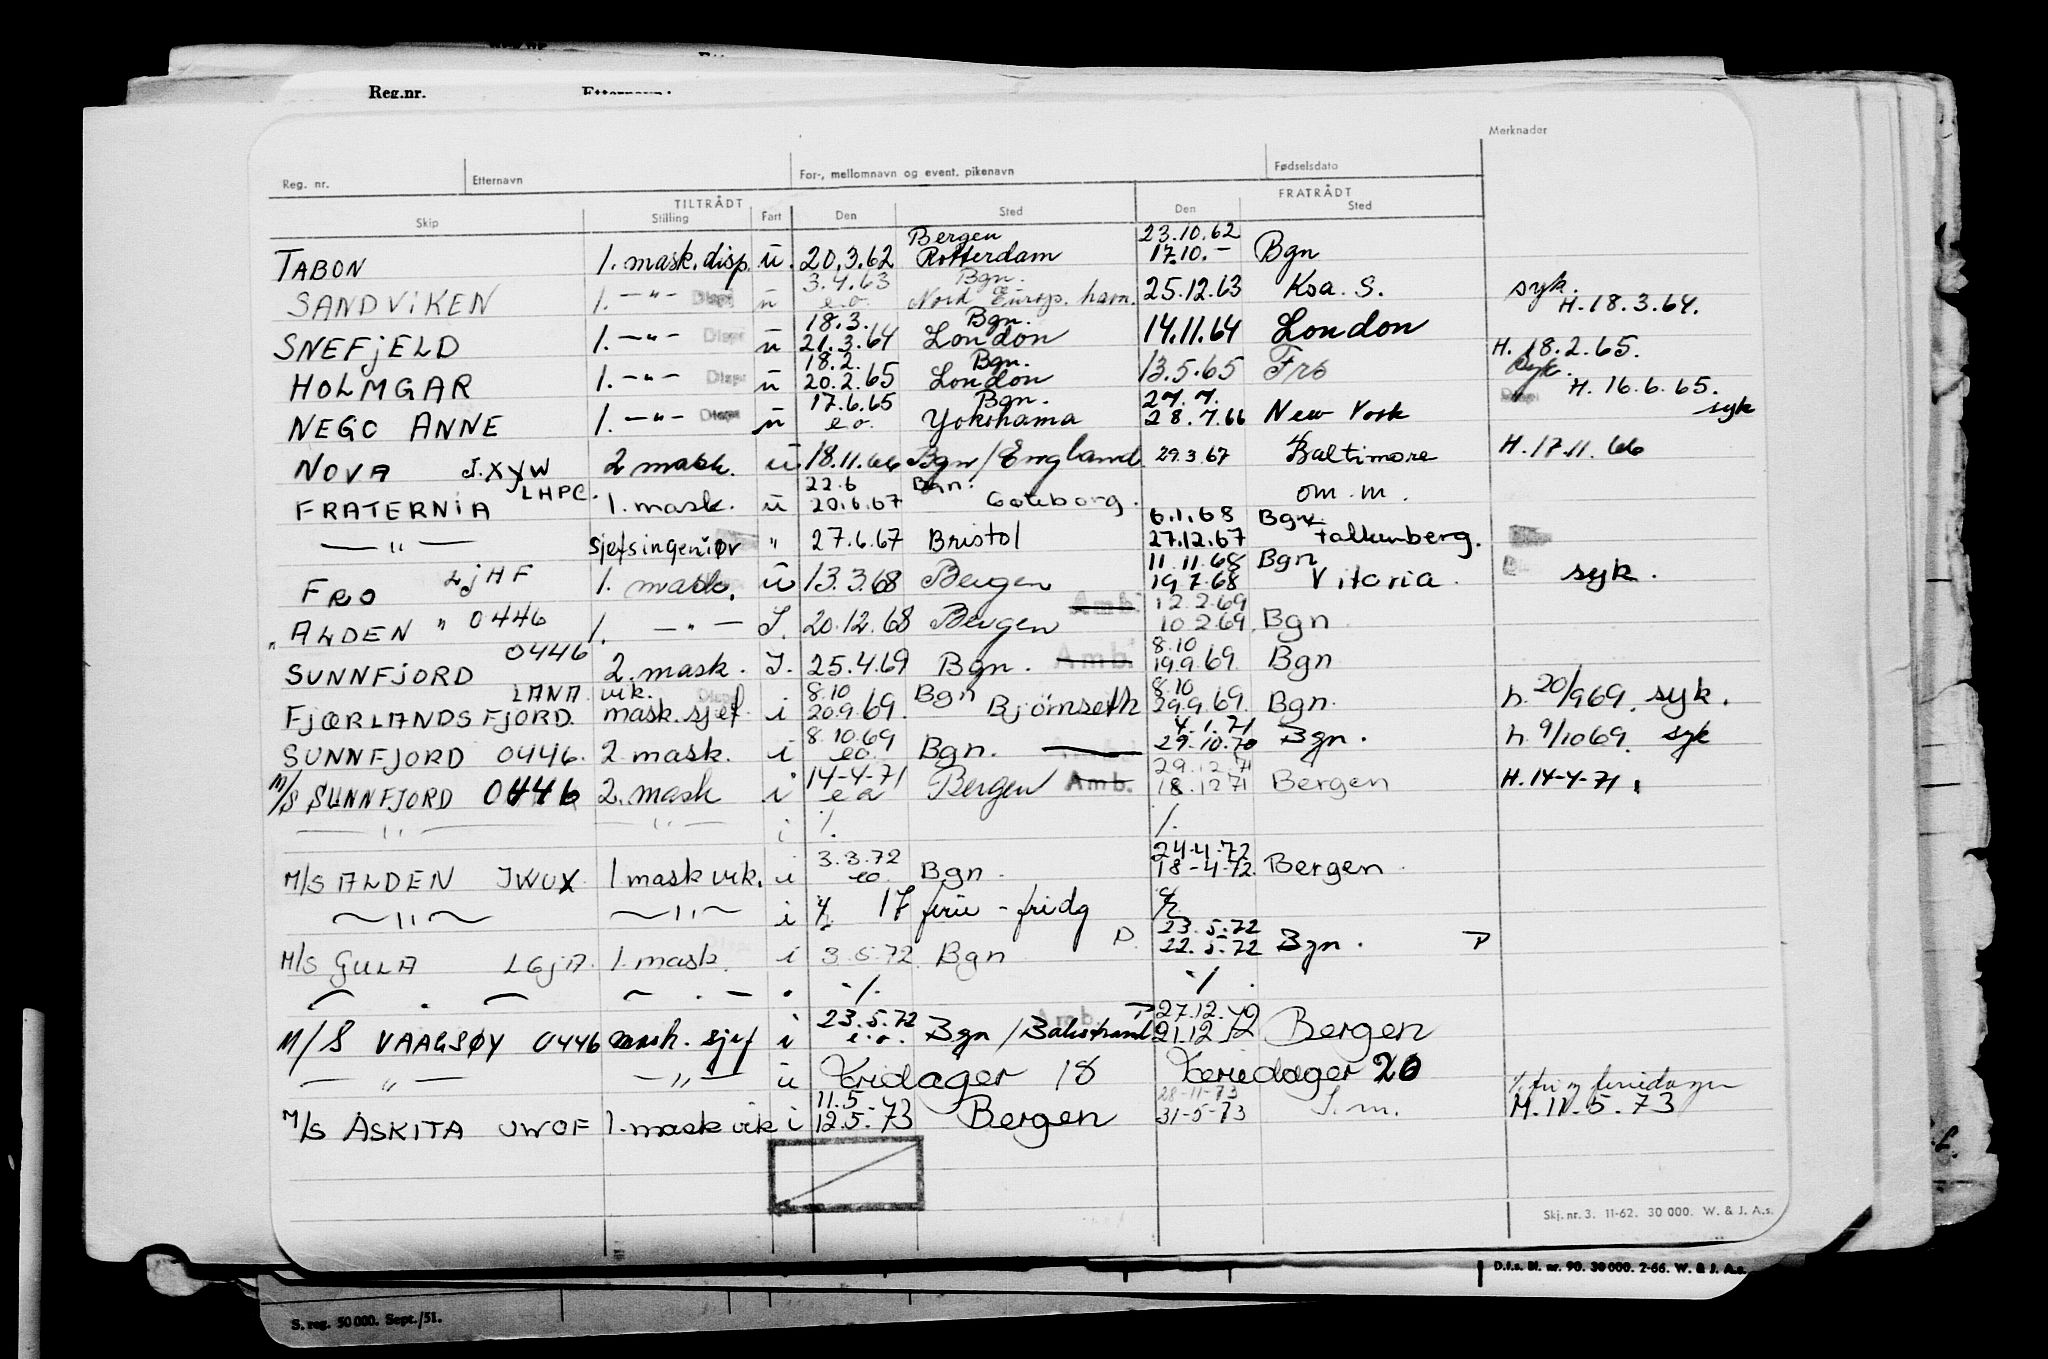 Reg.nr.
Merknader
Reg. nr. Etternavn For-, mellomnavn og event. pikenavn Fødselsdato
TILTRÅDT FRATRÅDT
Skip Stilling Fart Den Sted Den Sted
Bergen 23.10.62
TABON 1. mask. disp. u. 20.3.62 Rotterdam 17.10. - Bgn
3.4.63 Bgn.
SANDVIKEN 1. -"- Disp u e.o. Nord Europ. havn. 25.12.63 Ksa. S. syk. H. 18.3.64.
18.3. Bgn.
SNEFJELD 1. -"- Disp u 21.3.64 London 14.11.64 London
18.2. Bgn. H. 18.2.65.
HOLMGAR 1. -"- Disp u 20.2.65 London 13.5.65 Fro syk. H. 16.6.65.
17.6.65 Bgn. 27.7.
NEGO ANNE 1. -"- Disp u e.o. Yokohama 28.7.66 New York syk
NOVA J.XYW 2 mask. u 18.11.66 Bgn/England 29.3.67 Baltimore H. 17.11.66
LHPC. 22.6 Bgn.
FRATERNIA 1. mask. u 20.6.67 Goteborg. om. m.
6.1.68 Bgn
-"- sjefsingeniør " 27.6.67 Bristol 27.12.67 Falkenberg.
LJHF 11.11.68 Bgn
FRO 1. mask. u 13.3.68 Bergen 19.7.68 Vitoria. syk.
Amb. 12.2.69
"ALDEN" 0446 1. -"- I. 20.12.68 Bergen 10.2.69. Bgn
0446 8.10
SUNNFJORD 2. mask. I. 25.4.69 Bgn. Amb. 19.9.69. Bgn
LANA vik. 8.10 Bgn 8.10
FJÆRLANDSFJORD. mask. sjef i 20.9.69. Bjömseth 29.9.69. Bgn. h. 20/969. syk.
8.10.69 4.1.71
SUNNFJORD 0446. 2 mask. i eo. Bgn. 29.10.70 Bgn. h. 9/1069. syk
14-4-71 29.12.71
M/S SUNNFJORD 0446 2. mask i ea Bergen Amb. 18.1271 Bergen H. 14-4-71.
-"- -"- i %. %.
3.3.72 24-4-72
M/S ALDEN JWUX 1 mask vik. i eo. Bgn. 18-4-72. Bergen.
-"- -"- i % 17 ferie - fridg %
23.5.72
M/S GULA LGJA. 1. mask. i 3.5.72 Bgn P. 22.5.72 Bgn. P
- . - - . - . %. %.
23.5.72 Amb. P 27.12.72
M/S VAAGSØY 0446 mask. sjef i e.o. Bgn/Balestrand 21.12.72 Bergen
-"- -"- u Fridager 18 Feriedager 20
11.5 28-11-73 % fri og feriedager
M/S ASKITA JWOF 1. mask vik i 12.5.73 Bergen 31-5-73 S.m. H. 11.5.73
Skj. nr. 3. 11-62. 30 000. W. & J. A.s.
D.f.s. Bl. nr. 90. 30 000. 2-66. W. & J. A.s.
S. reg. 50 000. Sept./51.